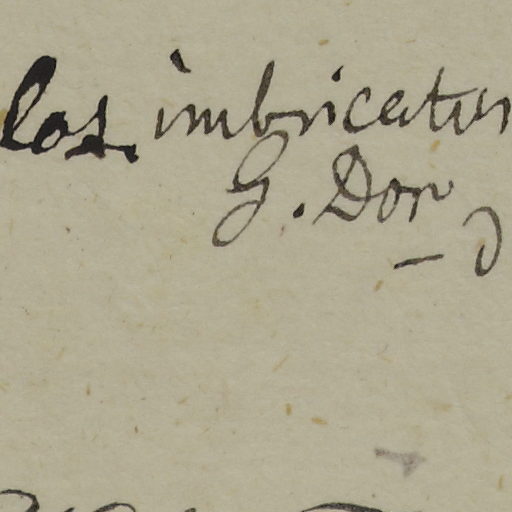 los. imbricatus
G. Don